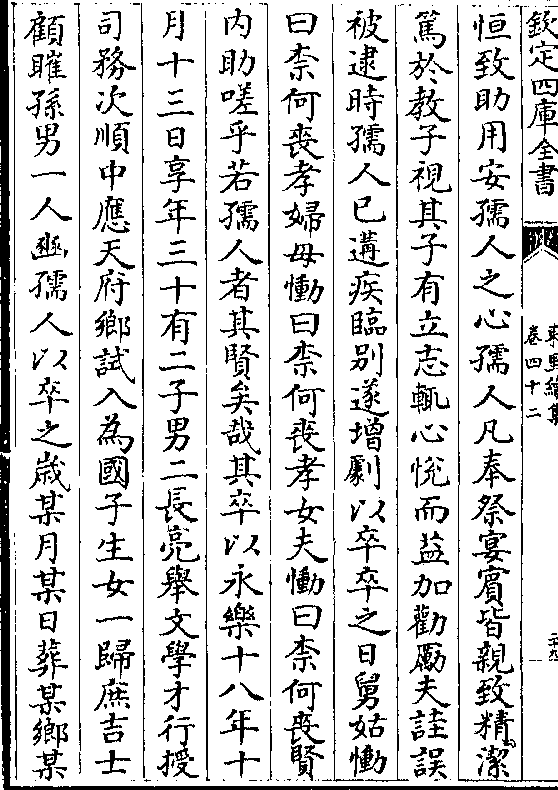 欽定四庫全書
東里續集
卷四十二
恒致助用安孺人之心孺人凡奉祭宴賓皆親致精潔
篤於教子視其子有立志輒心悅而益加勸勵夫詿誤
被逮時孺人已遘疾臨別遂增劇以卒卒之日舅姑慟
曰柰何喪孝婦母慟曰柰何喪孝女夫慟曰柰何喪賢
內助嗟乎若孺人者其賢矣哉其卒以永樂十八年十
月十三日享年三十有二子男二長亮舉文學才行授
司務次順中應天府鄉試入為國子生女一歸庶吉士
顧睢孫男一人豳孺人以卒之歲某月某日葬某鄉某